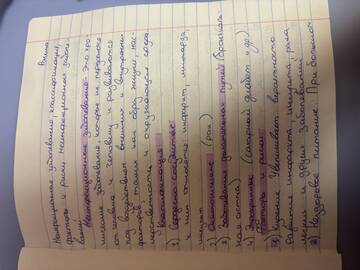 Неинфекционные заболевания, классификация,
факторы и риски неинфекционных заболе-
ваний.
Неинфекционные заболевания - это хро-
нические заболевания которые не передаются
от человека к человеку и развиваются
под воздействием внешних и внутренних
факторов, таких как образ жизни, нас-
ледственность и окружающая среда.
Классификация
1) Сердечно-сосудистые
к ним относятся инфаркт, миокарда,
инсульт
2) Онкологические (рак)
3) Заболевания дыхательных путей (бронхиаль-
ная астма)
4) Эндокринные (сахарный диабет и др)
Факторы и риски
1) Курение Увеличивает вероятность
развития инфаркта, инсульта, рака
легких и других заболеваний
2) Нездоровое питание При большом